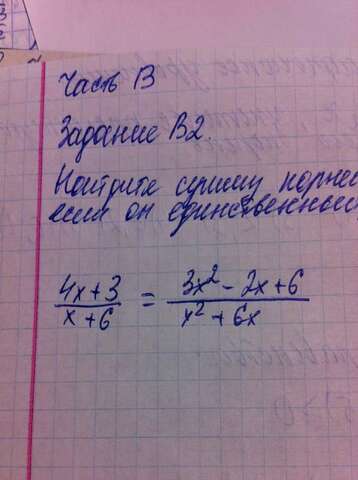 Часть В
Задание В2.
Найдите сумму корней
если он единственный
4x+3 / x+6 = 3x² - 2x + 6 / x² + 6x